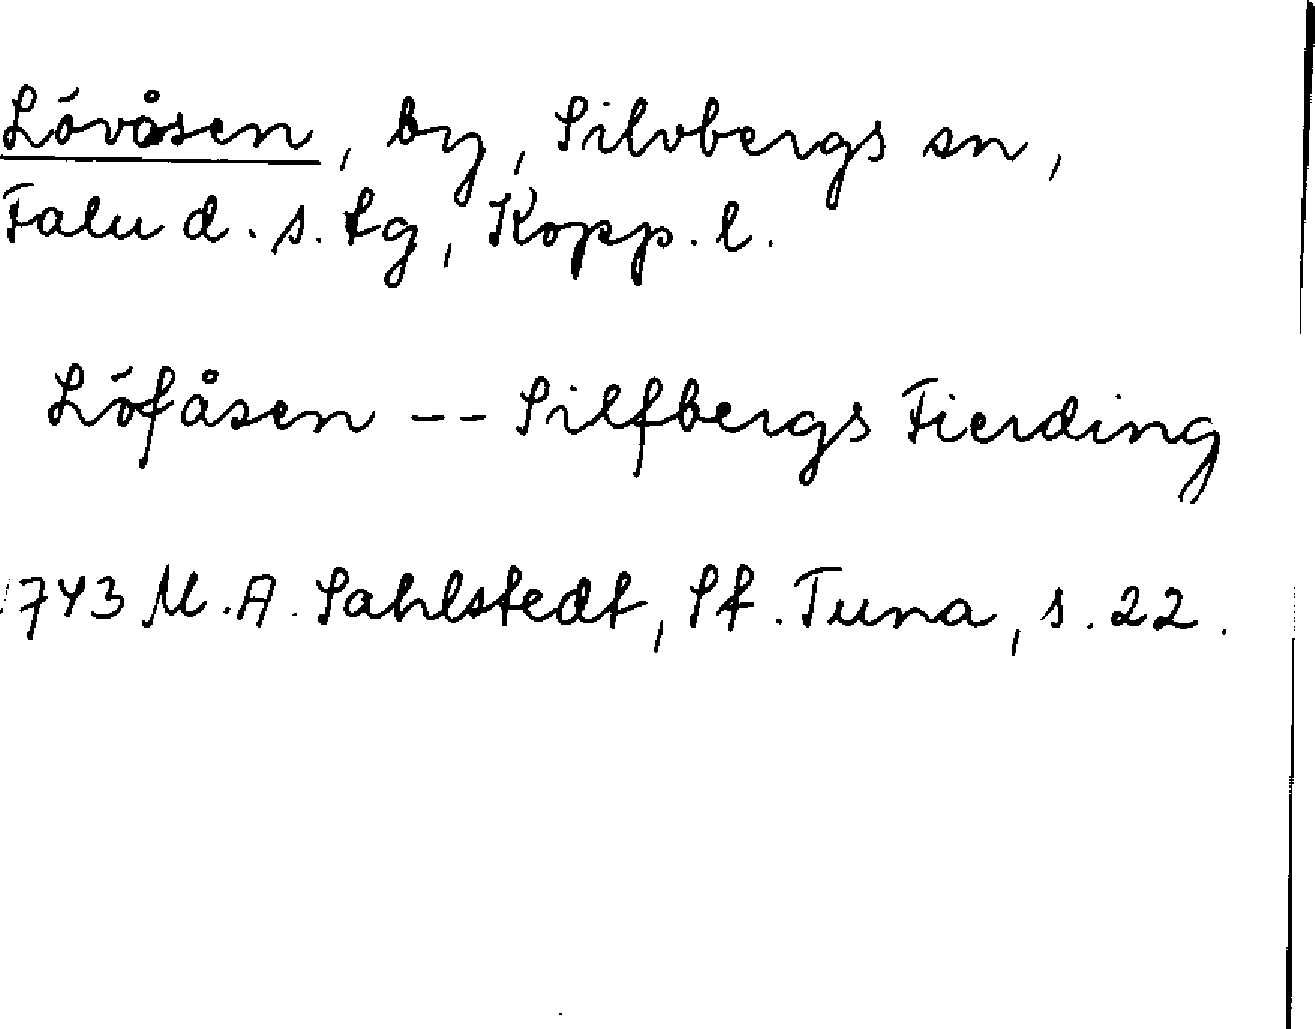 Lövåsen, by, Silvbergs sn,
Falu d. s. tg, Kopp. l.
Löfåsen -- Silfbergs Fierding
1743 M. A. Sahlstedt, St. Tuna, s. 22.